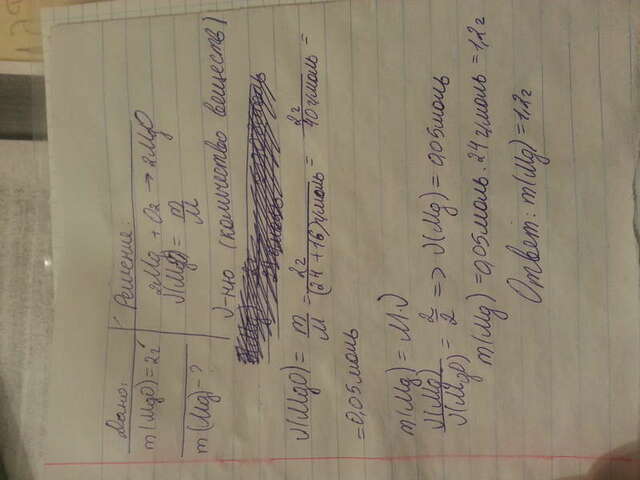 Дано:
m(MgO) = 2г
m(Mg) - ?
Решение:
2Mg + O2 → 2MgO
ν(MgO) = m/M
ν-ню (количество веществ)
ν(MgO) = m/M = 2г/(24+16)г/моль = 2г/40г/моль =
= 0,05 моль
m(Mg) = M·ν
ν(Mg)/ν(MgO) = 2/2 => ν(Mg) = 0,05 моль
m(Mg) = 0,05 моль · 24 г/моль = 1,2 г
Ответ: m(Mg) = 1,2 г